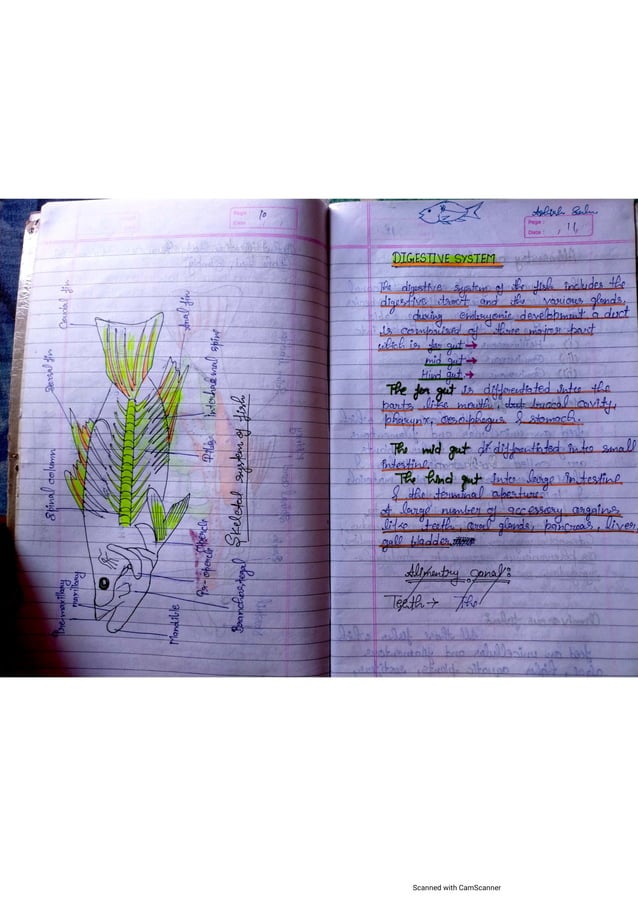 Page : 10
Date :
Caudal fin
Anal fin
Spinal column
Ribs
Interhaemal spine
Skeletal system of fish
Branchiostegal
Premaxillary
maxillary
Mandible
Page :
Date : 11
DIGESTIVE SYSTEM
The digestive system of the fish includes the
digestive tract and the various glands,
during embryonic development a duct
is comprised of three major part
which is for gut →
mid gut →
Hind gut →
The for gut is differentiated into the
parts like mouth, buccal cavity,
pharynx, oesophagus & stomach.
The mid gut differentiated into small
intestine.
The hind gut into large intestine
& the terminal aperture.
A large number of accessory organs
like teeth, oral glands, pancreas, liver
gall bladder
Alimentry canal :
Teeth → The
Scanned with CamScanner